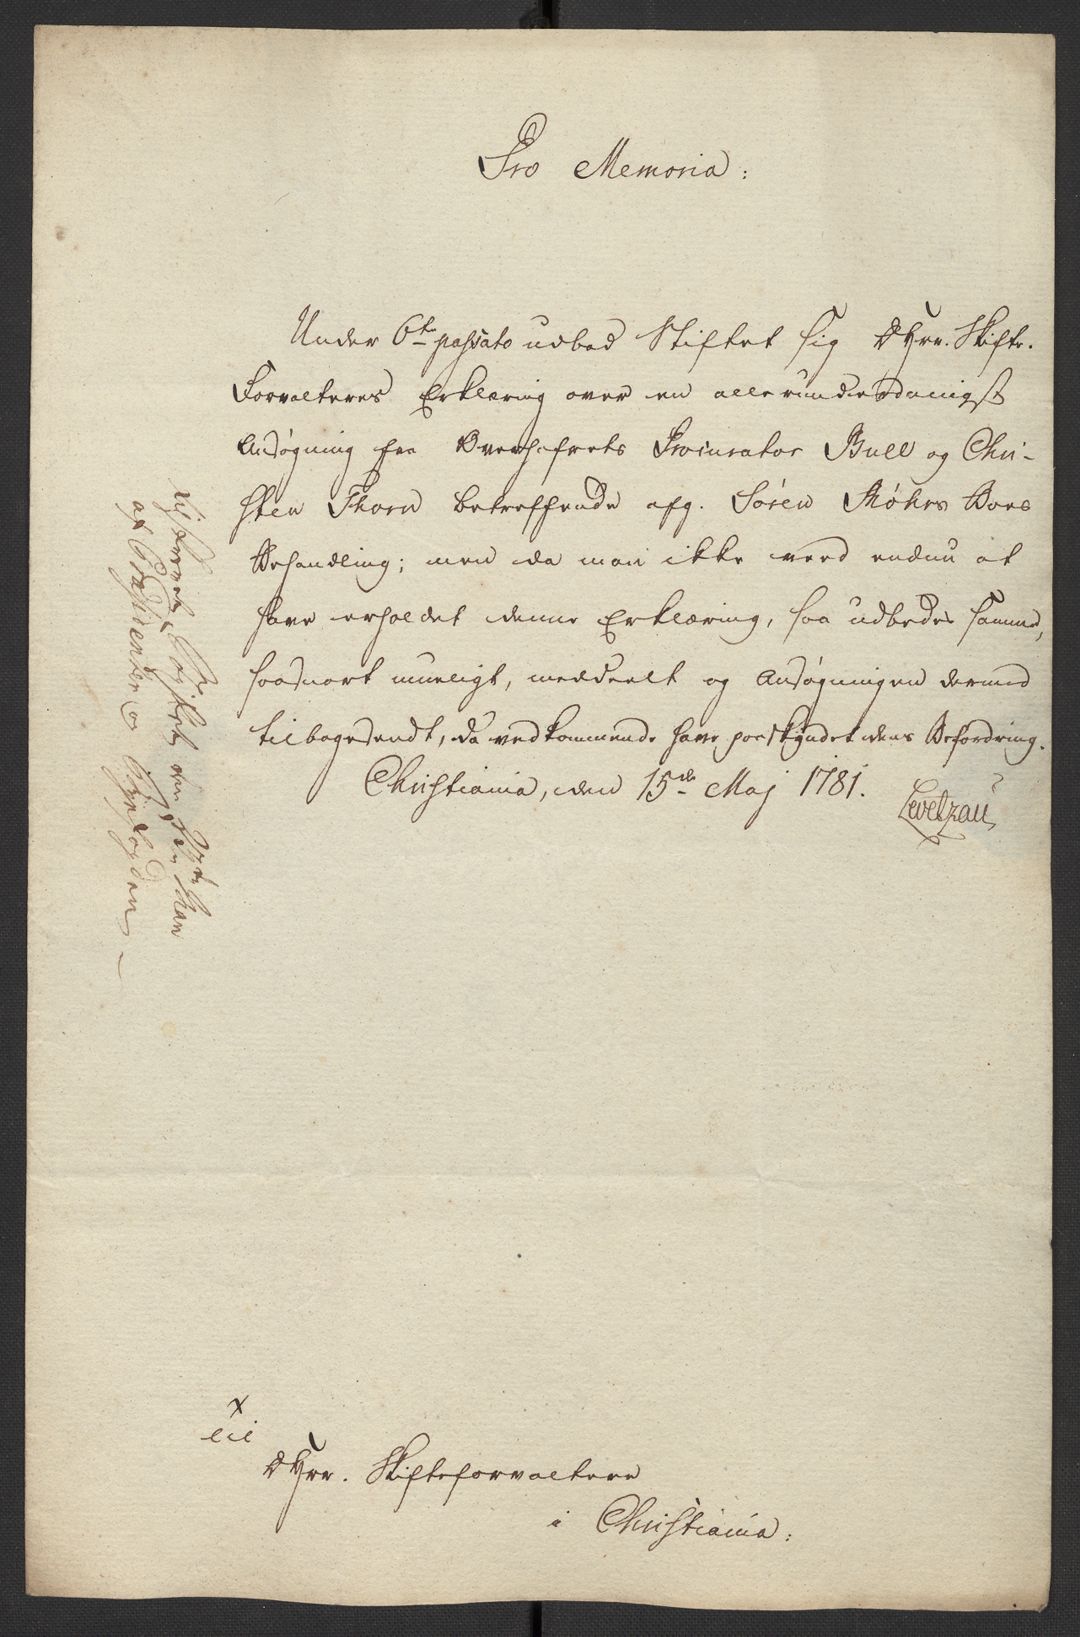 Pro Memoria:
Under 6te passato udbad Stiftet sig DHrr. Skifte-
Forvalteres Erklæring over en allerunderdanigst
Ansøgning fra Overhofrets Procurator Bull og Chri-
sten Thorn betreffende afg. Søren Møhrs Boes
Behandling; men da man ikke veed endnu at
have erholdet denne Erklæring, saa udbedes samme,
saasnart mueligt, meddeelt og Ansøgningen dermed
tilbagesendt, da vedkommende have paaskyndet dens Befordring.
Christiania, den 15de Maj 1781.
Levetzau
af Præsidenten og Byefogden
til
DHrr. Skifteforvaltere
i Christiania: